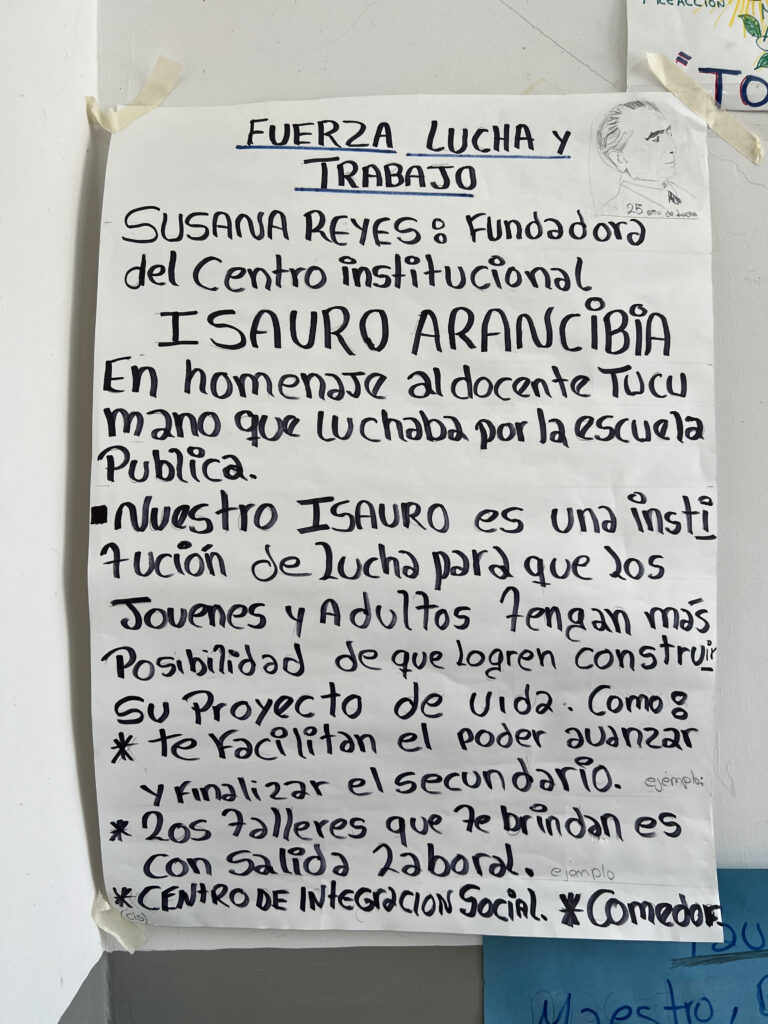 FUERZA LUCHA Y
TRABAJO
25 año de Lucha
SUSANA REYES: Fundadora
del Centro institucional
ISAURO ARANCIBIA
En homenaje al docente Tucu
mano que luchaba por la escuela
Publica.
▪Nuestro ISAURO es una insti
tución de lucha para que los
Jovenes y Adultos tengan más
Posibilidad de que logren construir
su Proyecto de vida. Como:
* te facilitan el poder avanzar
y finalizar el secundario. ejemplo:
* Los talleres que te brindan es
con salida laboral. ejemplo
* CENTRO DE INTEGRACION SOCIAL. * Comedor
(CIS)
ACCION
"TO
Maestro,